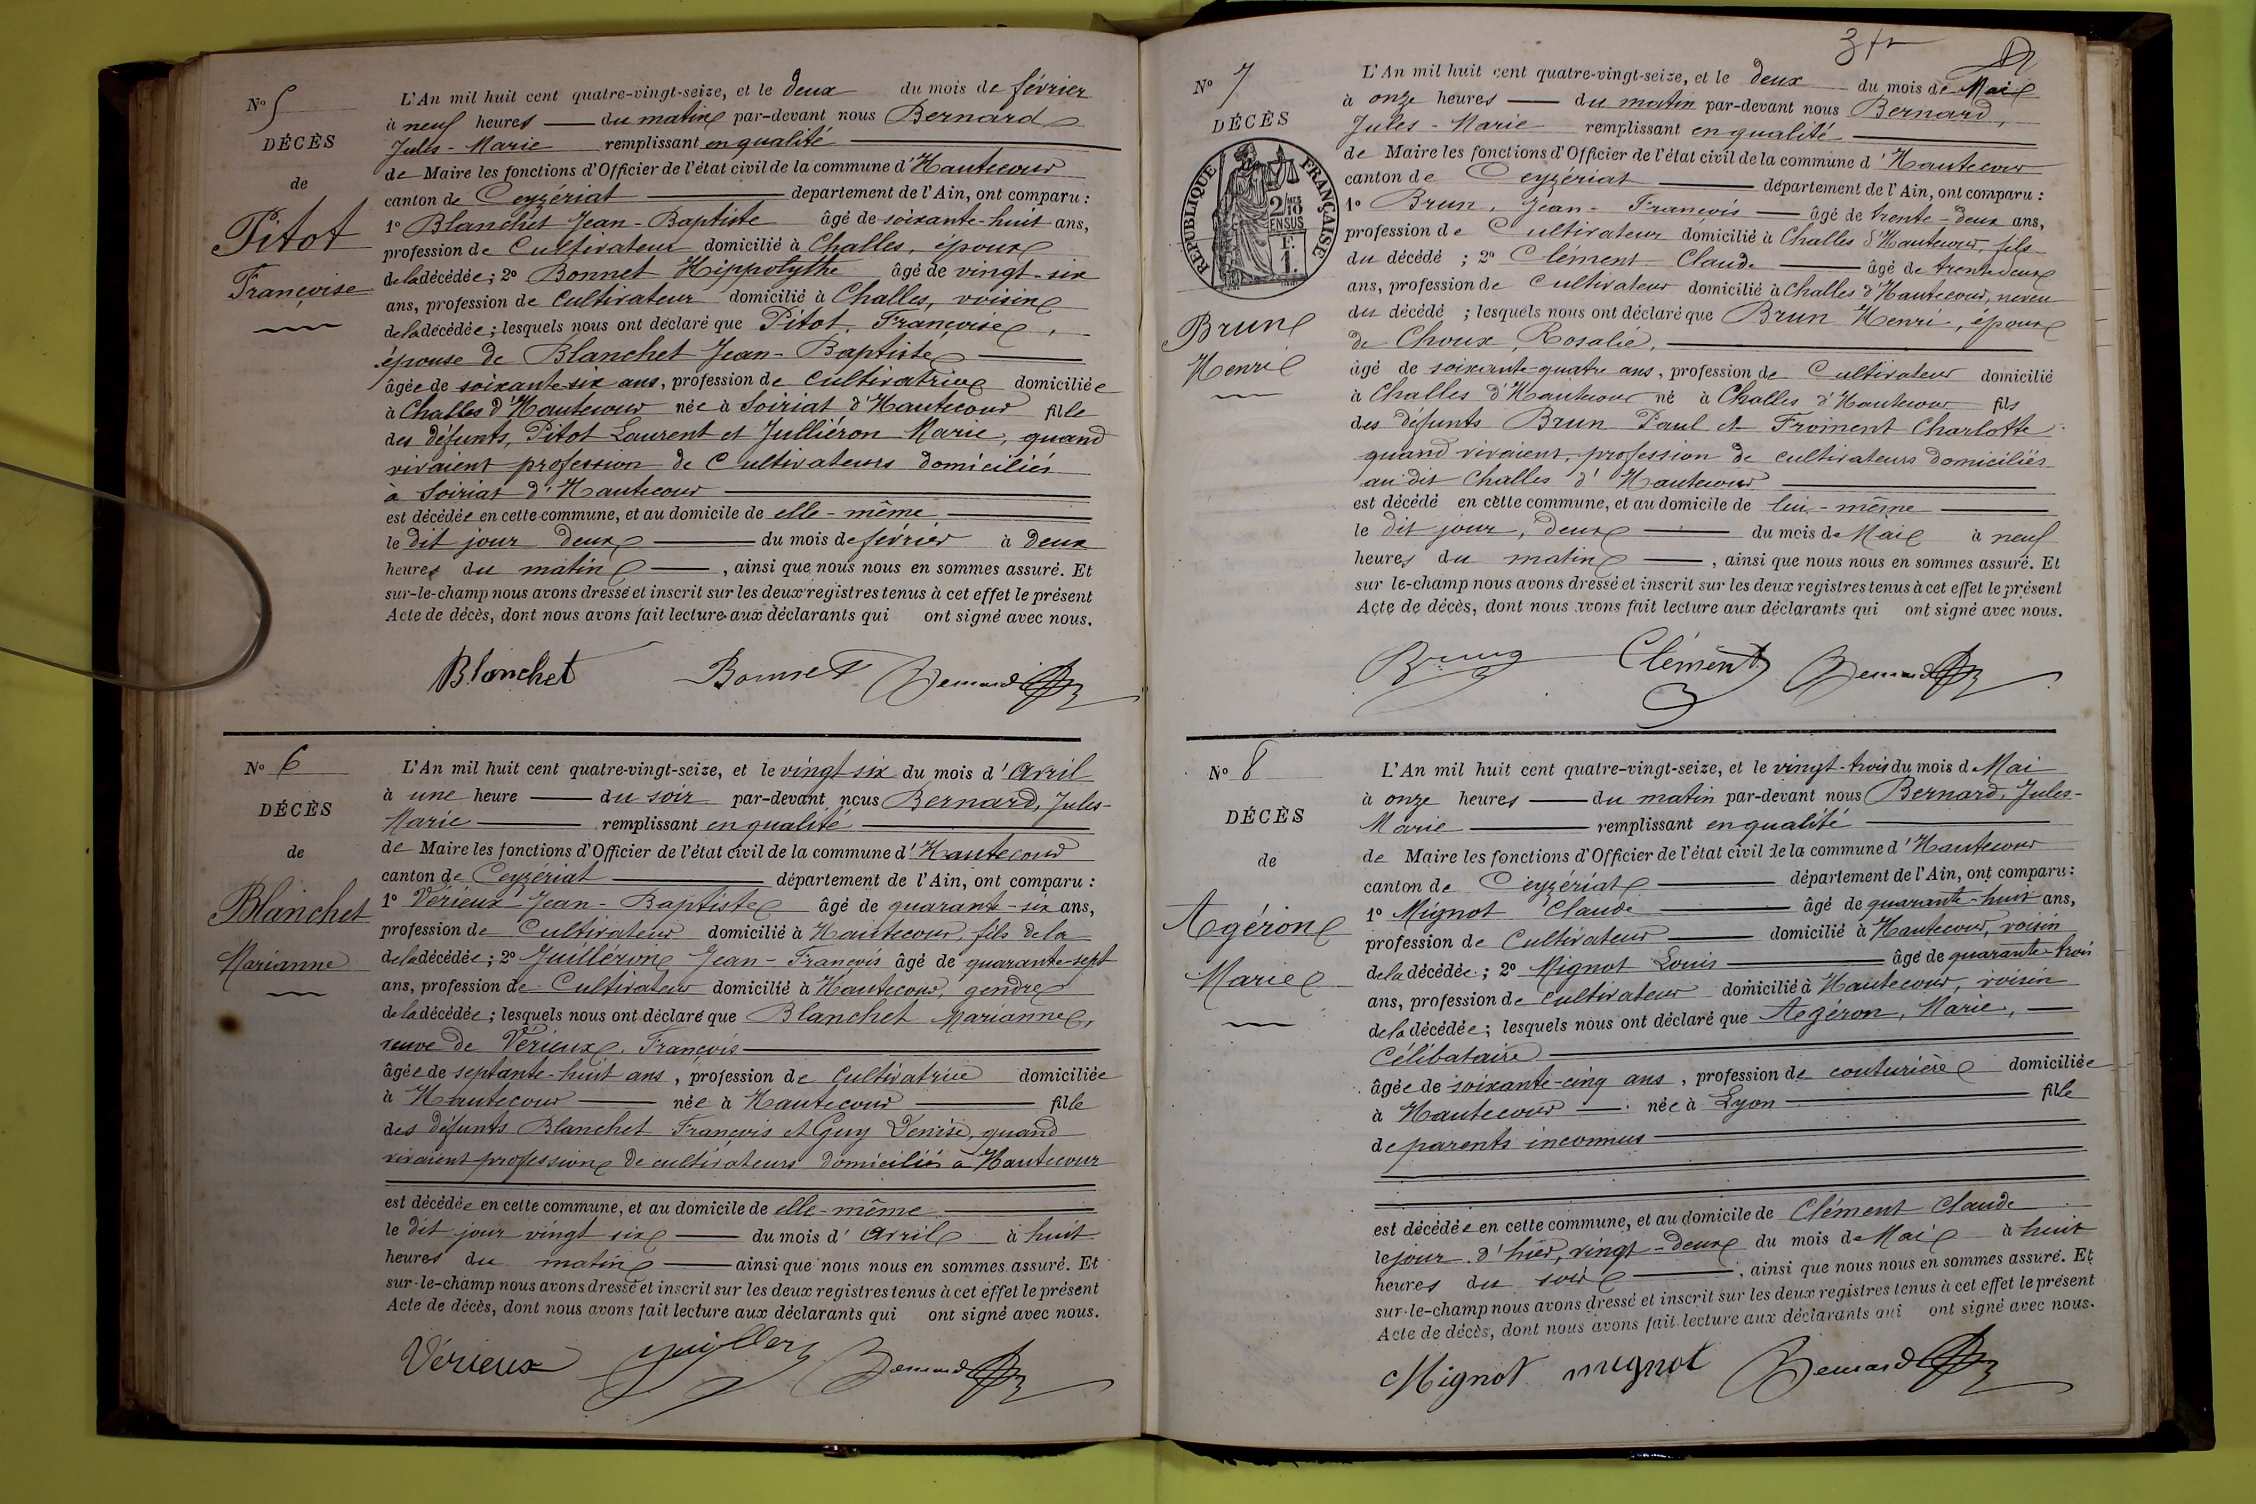 N° 5
DÉCÈS
de
Pitot
Françoise
L'An mil huit cent quatre-vingt-seize, et le deux du mois de février
à neuf heures du matin par-devant nous Bernard
Jules-Marie remplissant en qualité
de Maire les fonctions d'Officier de l'état civil de la commune d'Hautecour
canton de Ceyzériat département de l'Ain, ont comparu :
1° Blanchet Jean-Baptiste âgé de soixante-huit ans,
profession de Cultivateur domicilié à Challes, époux
de la décédée ; 2° Bonnet Hippolythe âgé de vingt-six
ans, profession de cultivateur domicilié à Challes, voisin
de la décédée ; lesquels nous ont déclaré que Pitot, Françoise,
épouse de Blanchet Jean-Baptiste,
âgée de soixante-six ans, profession de cultivatrice domiciliée
à Challes d'Hautecour née à Soiriat d'Hautecour fille
des défunts, Pitot Laurent et Julliéron Marie, quand
vivaient profession de Cultivateurs domiciliés
à Soiriat d'Hautecour
est décédée en cette commune, et au domicile de elle-même
le dit jour deux du mois de février à deux
heures du matin, ainsi que nous nous en sommes assuré. Et
sur-le-champ nous avons dressé et inscrit sur les deux registres tenus à cet effet le présent
Acte de décès, dont nous avons fait lecture aux déclarants qui ont signé avec nous.
Blanchet Bonnet Bernard
N° 6
DÉCÈS
de
Blanchet
Marianne
L'An mil huit cent quatre-vingt-seize, et le vingt six du mois d'Avril
à une heure du soir par-devant nous Bernard, Jules-
Marie remplissant en qualité
de Maire les fonctions d'Officier de l'état civil de la commune d'Hautecour
canton de Ceyzériat département de l'Ain, ont comparu :
1° Vérieux Jean-Baptiste âgé de quarante-six ans,
profession de Cultivateur domicilié à Hautecour, fils de la
de la décédée ; 2° Juilléron Jean-François âgé de quarante-sept
ans, profession de Cultivateur domicilié à Hautecour, gendre
de la décédée ; lesquels nous ont déclaré que Blanchet Marianne,
veuve de Vérieux, François
âgée de septante-huit ans, profession de Cultivatrice domiciliée
à Hautecour née à Hautecour fille
des défunts Blanchet François et Guy Denise, quand
vivaient profession de cultivateurs domiciliés à Hautecour
est décédée en cette commune, et au domicile de elle-même
le dit jour vingt six du mois d'Avril à huit
heures du matin ainsi que nous nous en sommes assuré. Et
sur-le-champ nous avons dressé et inscrit sur les deux registres tenus à cet effet le présent
Acte de décès, dont nous avons fait lecture aux déclarants qui ont signé avec nous.
Vérieux Bernard
3 fr
N° 7
DÉCÈS
RÉPUBLIQUE FRANÇAISE
2/10 EN SUS
1 F.
Brun
Henri
L'An mil huit cent quatre-vingt-seize, et le deux du mois de Mai
à onze heures du matin par-devant nous Bernard,
Jules-Marie remplissant en qualité
de Maire les fonctions d'Officier de l'état civil de la commune d'Hautecour
canton de Ceyzériat département de l'Ain, ont comparu :
1° Brun, Jean-François âgé de trente-deux ans,
profession de Cultivateur domicilié à Challes d'Hautecour, fils
du décédé ; 2° Clément Claude âgé de trente deux
ans, profession de Cultivateur domicilié à Challes d'Hautecour, neveu
du décédé ; lesquels nous ont déclaré que Brun Henri, époux
de Choux, Rosalie,
âgé de soixante-quatre ans, profession de Cultivateur domicilié
à Challes d'Hautecour né à Challes d'Hautecour fils
des défunts Brun Paul et Froment Charlotte
quand vivaient, profession de cultivateurs domiciliés
au dit Challes d'Hautecour
est décédé en cette commune, et au domicile de lui-même
le dit jour, deux du mois de Mai à neuf
heures du matin, ainsi que nous nous en sommes assuré. Et
sur le-champ nous avons dressé et inscrit sur les deux registres tenus à cet effet le présent
Acte de décès, dont nous avons fait lecture aux déclarants qui ont signé avec nous.
Brun Clément Bernard
N° 8
DÉCÈS
de
Agéron
Marie
L'An mil huit cent quatre-vingt-seize, et le vingt-trois du mois de Mai
à onze heures du matin par-devant nous Bernard, Jules-
Marie remplissant en qualité
de Maire les fonctions d'Officier de l'état civil de la commune d'Hautecour
canton de Ceyzériat département de l'Ain, ont comparu :
1° Mignot Claude âgé de quarante-huit ans,
profession de Cultivateur domicilié à Hautecour, voisin
de la décédée ; 2° Mignot Louis âgé de quarante-trois
ans, profession de cultivateur domicilié à Hautecour, voisin
de la décédée ; lesquels nous ont déclaré que Agéron, Marie,
Célibataire
âgée de soixante-cinq ans, profession de couturière domiciliée
à Hautecour née à Lyon fille
de parents inconnus
est décédée en cette commune, et au domicile de Clément Claude
le jour d'hier, vingt-deux du mois de Mai à huit
heures du soir, ainsi que nous nous en sommes assuré. Et
sur-le-champ nous avons dressé et inscrit sur les deux registres tenus à cet effet le présent
Acte de décès, dont nous avons fait lecture aux déclarants qui ont signé avec nous.
Mignot mignot Bernard